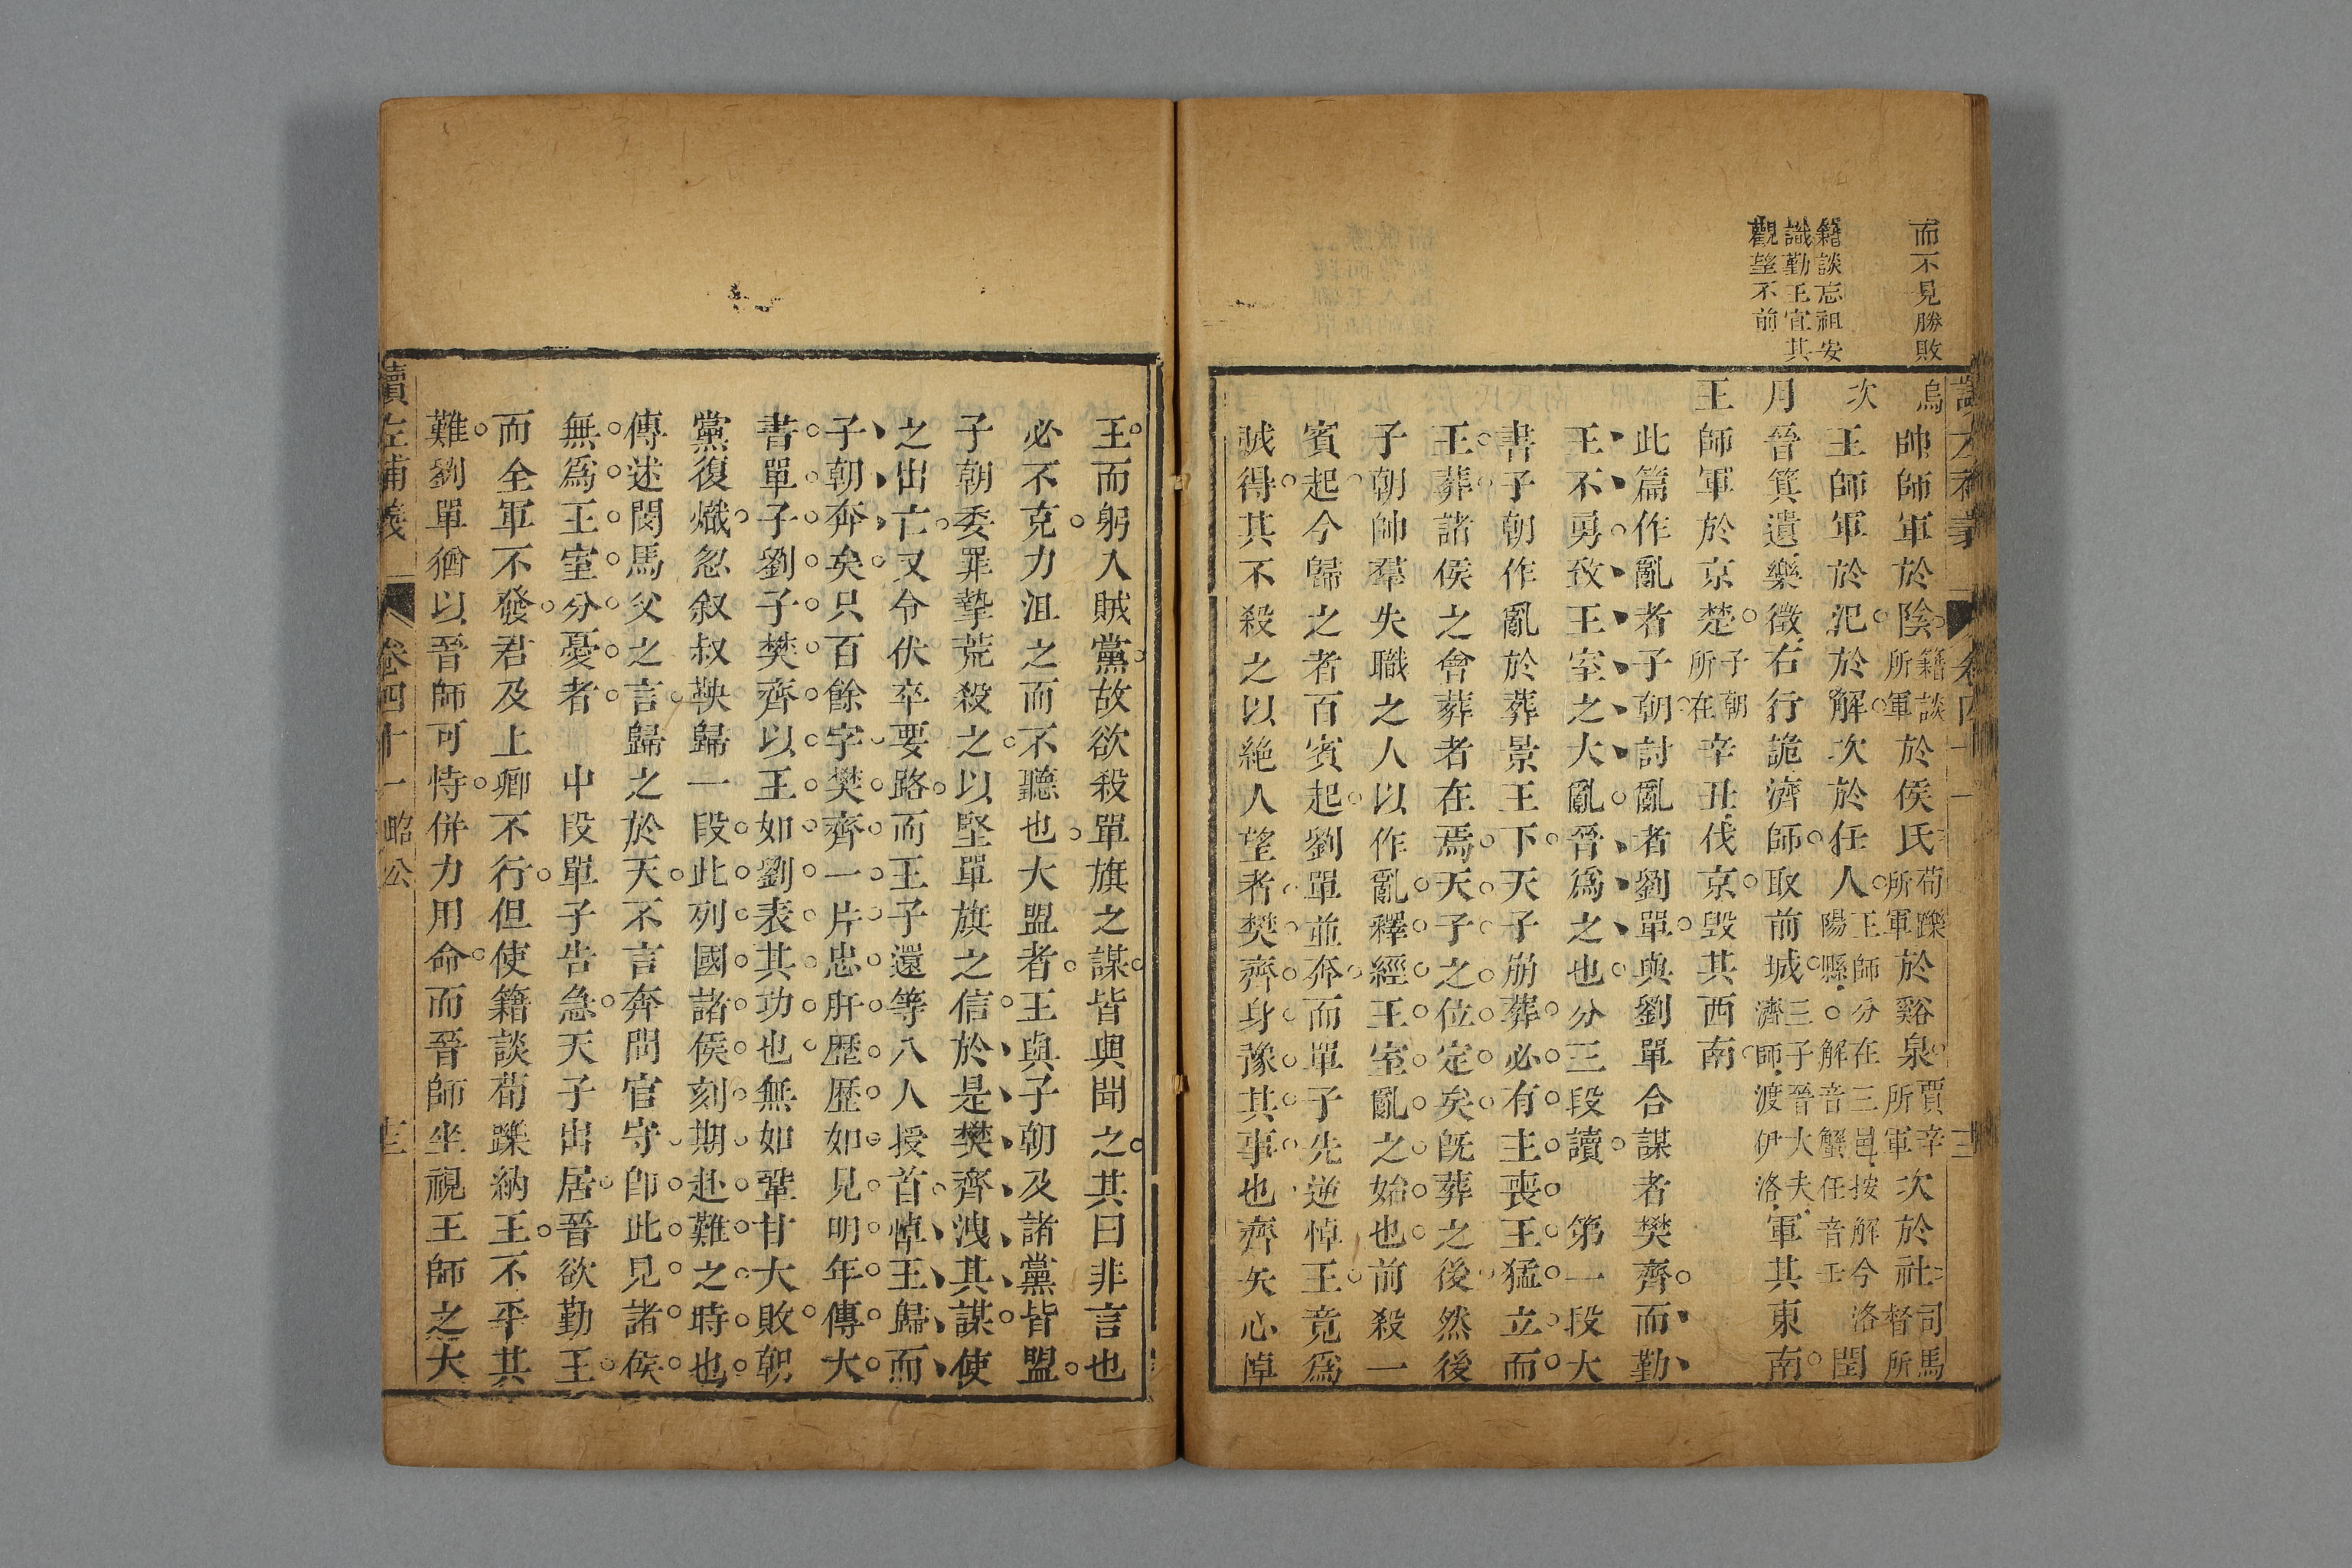 而不見勝敗
籍談忘祖安
識勤王宜其
觀望不前
烏帥師軍於陰籍談所軍於侯氏荀躒所軍於谿泉賈辛所軍次於社司馬督所
次王師軍於氾於解次於任人王師分在三邑按解今洛陽縣○解音蟹任音壬閏
月晉箕遺樂徵右行詭濟師取前城三子晉大夫濟師渡伊洛軍其東南
王師軍於京楚子朝所在辛丑伐京毀其西南
此篇作亂者子朝討亂者劉單與劉單合謀者樊齊而勤
王不勇致王室之大亂晉爲之也分三段讀　第一段大
書子朝作亂於葬景王下天子崩葬必有主喪王猛立而
王葬諸侯之會葬者在焉天子之位定矣旣葬之後然後
子朝帥羣失職之人以作亂釋經王室亂之始也前殺一
賓起今歸之者百賓起劉單並奔而單子先逆悼王竟爲
誠得其不殺之以絕人望者樊齊身豫其事也齊矢心悼
王而躬入賊黨故欲殺單旗之謀皆與聞之其曰非言也
必不克力沮之而不聽也大盟者王與子朝及諸黨皆盟
子朝委罪摯荒殺之以堅單旗之信於是樊齊洩其謀使
之出亡又令伏卒要路而王子還等八人授首悼王歸而
子朝奔矣只百餘字樊齊一片忠肝歷歷如見明年傳大
書單子劉子樊齊以王如劉表其功也無如鞏甘大敗朝
黨復熾忽敘叔鞅歸一段此列國諸侯刻期赴難之時也
傳述閔馬父之言歸之於天不言奔問官守卽此見諸侯
無爲王室分憂者　中段單子告急天子出居晉欲勤王
而全軍不發君及上卿不行但使籍談荀躒納王不乎其
難劉單猶以晉師可恃併力用命而晉師坐視王師之大
讀左補義　卷四十一昭公